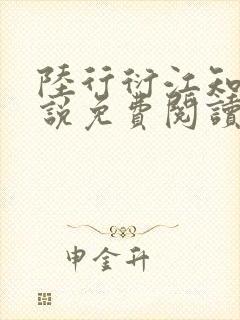 陸行衍江知
說免費閱讀
申金升